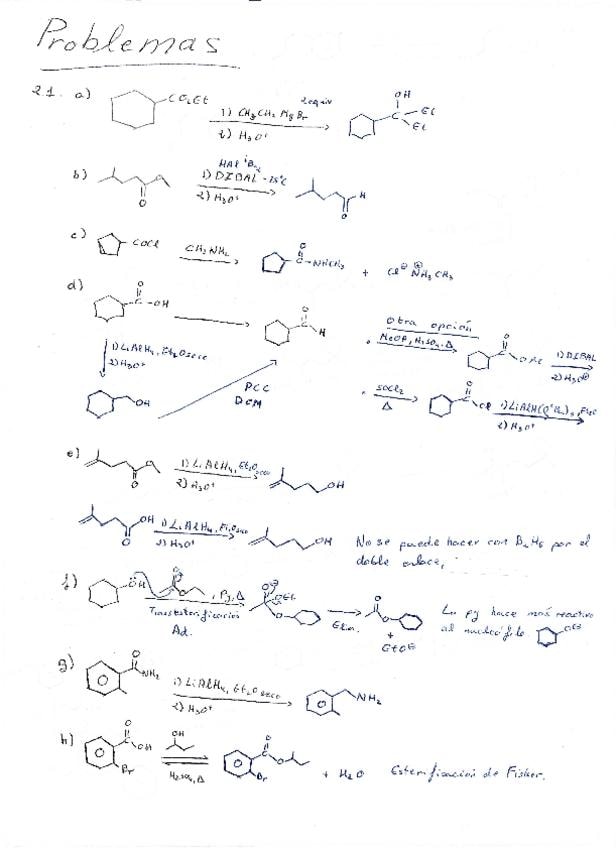 Problemas
2.1. a)
CO2Et
1) CH3CH2MgBr
2) H3O+
OH
C
Et
Et
b)
O
1) DIBAL -78°C
2) H3O+
H
O
c)
COCl
CH3NH2
O
C-NHCH3
+ Cl⊖ ⊕NH3CH3
d)
O
C-OH
O
C
H
1) LiAlH4, Et2O seco
2) H3O+
OH
PCC
DCM
Otra opción
MeOH, H2SO4, Δ
O
1) DIBAL
2) H3O⊕
SOCl2
Δ
O
C
Cl
2) H3O+
e)
O
1) LiAlH4, Et2O seco
2) H3O+
OH
O
OH
1) LiAlH4, Et2O seco
2) H3O+
OH
No se puede hacer con B2H6 por el
doble enlace,
f)
ÖH
O
, Py, Δ
Transesterificación
Ad.
OEt
O
Elim.
O
O
+
La py hace más reactivo
al nucleófilo.
g)
O
NH2
1) LiAlH4, Et2O seco
2) H3O+
NH2
h)
O
C
OH
Br
OH
H2SO4, Δ
O
C
O
Br
+ H2O
Esterificación de Fisher.